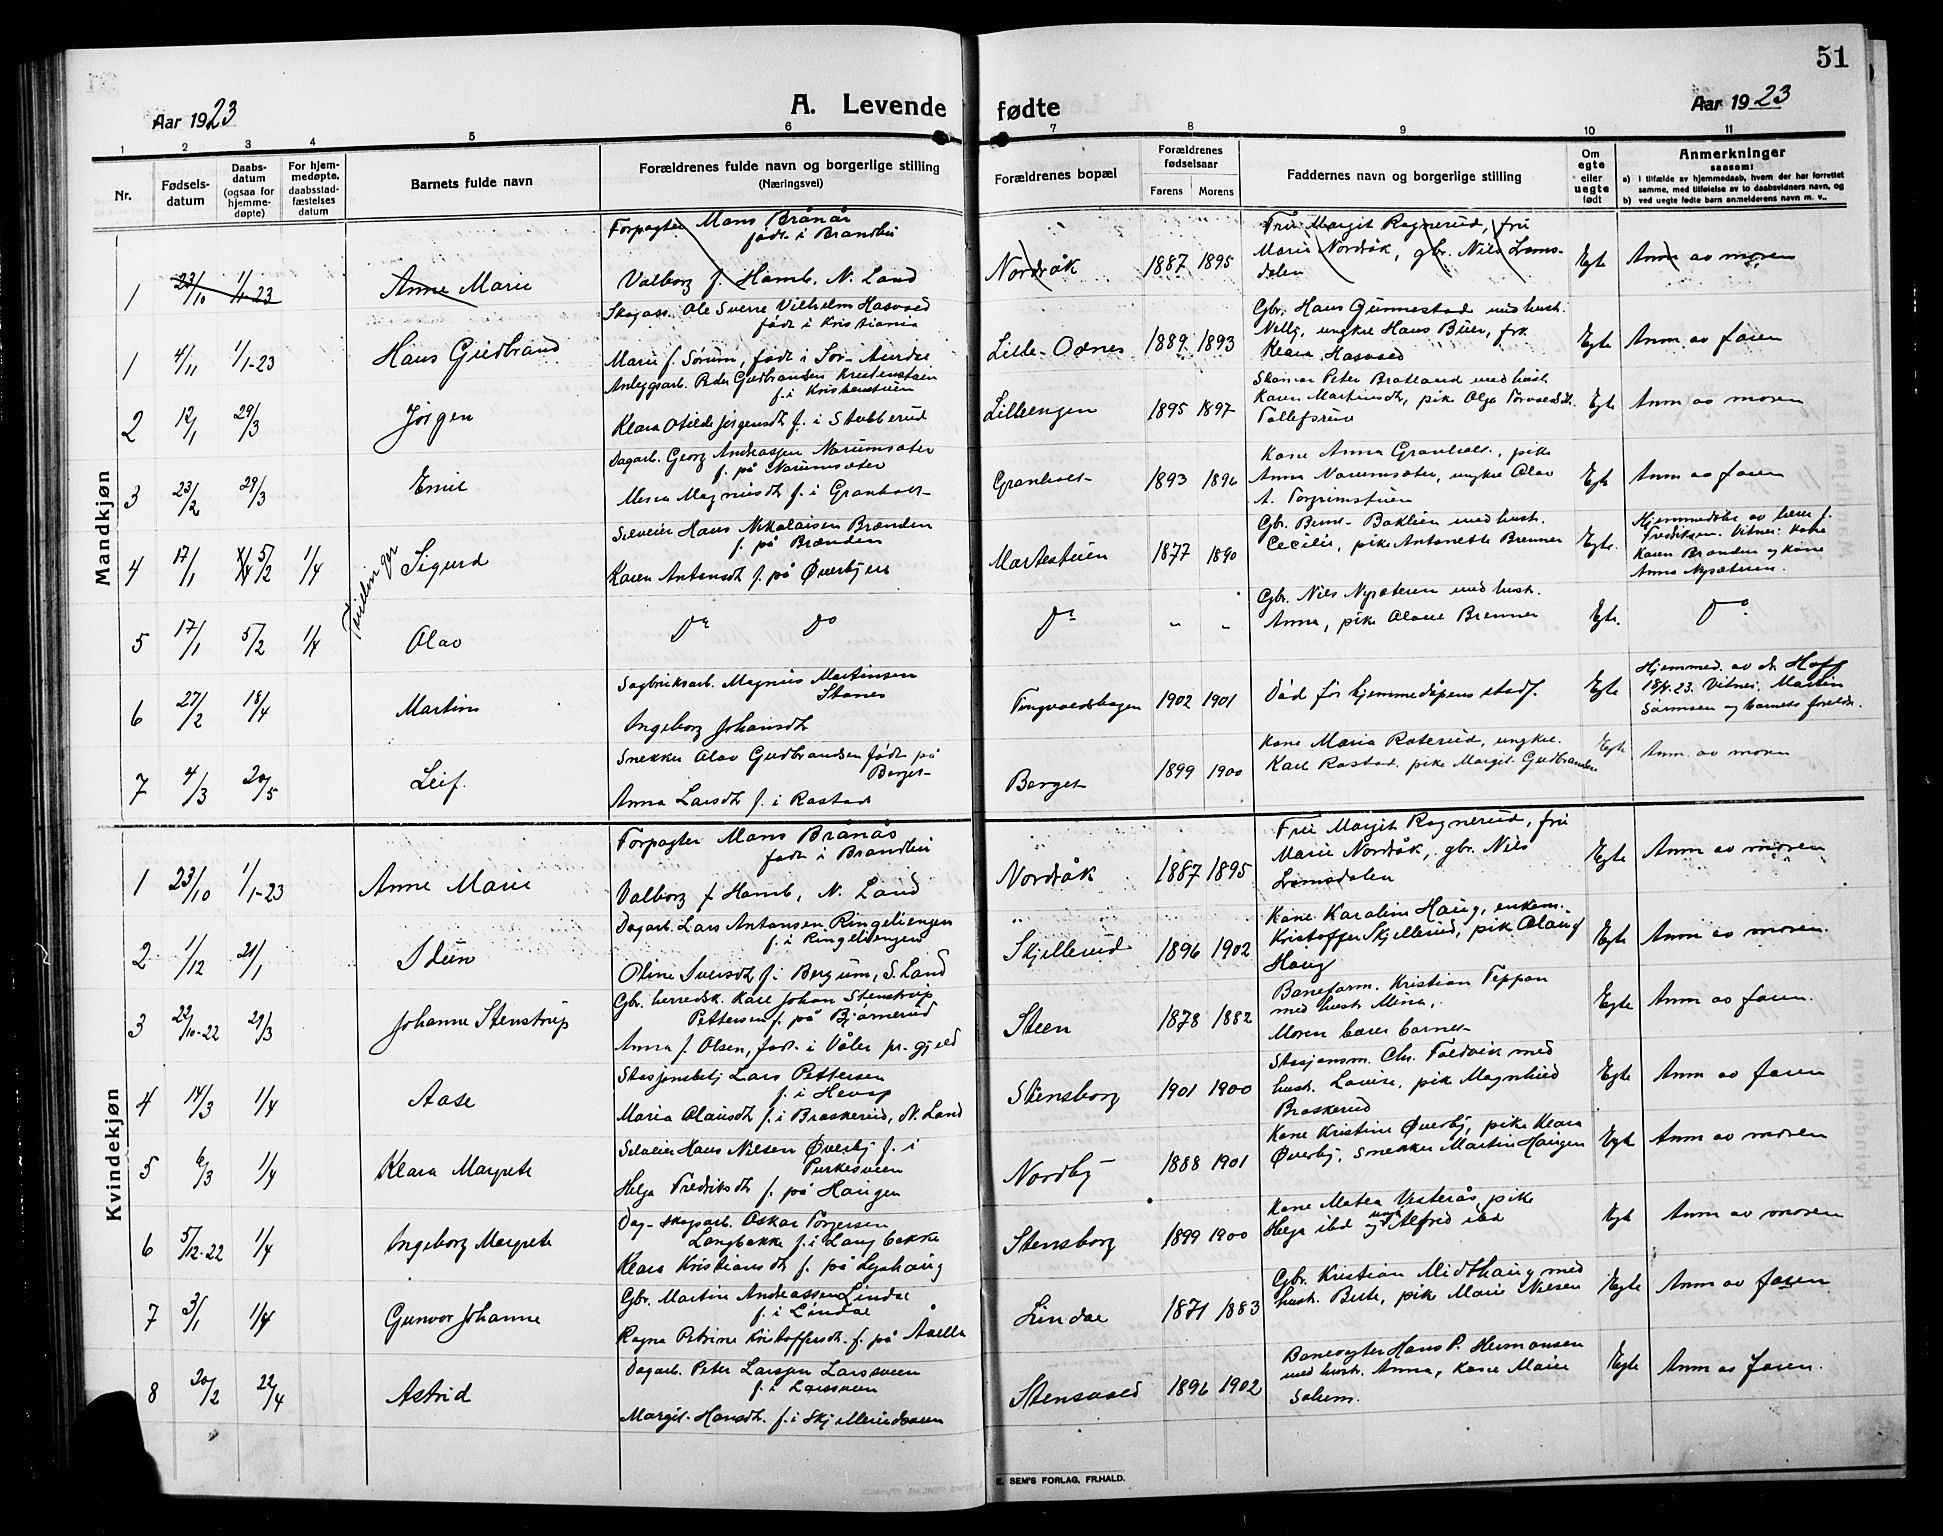 51
Aar 1923
A. Levende fødte
Aar 1923
1 2 3 4 5 6 7 8 9 10 11
Nr.
Fødsels-
datum
Daabs-
datum
(ogsaa for
hjemme-
døpte)
For hjem-
medøpte,
daabsstad-
fæstelses
datum
Barnets fulde navn
Forældrenes fulde navn og borgerlige stilling
(Næringsvei)
Forældrenes bopæl
Forældrenes
fødselsaar
Farens Morens
Faddernes navn og borgerlige stilling
Om
egte
eller
uegte
født
Anmerkninger
saasom:
a) i tilfælde av hjemmedaab, hvem der har forrettet
samme, med tilføielse av to daabsvidners navn, og
b) ved uegte fødte barn anmelderens navn m. v..
Mandkjøn
Forpagter Mons Brånås
født i Brandbu
1 23/10 1/1-23 Anne Marie
Valborg f. Hamb, N. Land
Nordråk 1887 1895
Fru Margit Ragnerud, fru
Marie Nordråk, gbr. Nils
dalen
Egte Anm av moren
Skogass. Ole Sverre Vilhelm Hasvold
født i Kristiania
1 4/11 1/1-23 Hans Gudbrand
Marie f. Sørum, født i Sør-Aurdal
Lille-Odnes 1889 1893
Gbr. Hans Gunnestad med hust.
Nelly, ungkar Hans Buer, frk
Klara Hasvold
Egte Anm. av faren
Anleggsarb. Peder Gudbrandsen Kristenstuen
f. i Kristenstuen
2 12/1 29/3 Jørgen
Klara Otilde Jørgensdt f. i Stubberud
Lilleengen 1895 1897
Skomar Peter Bratland med hust
Karen Martinsdt, pike Olga Torvaldsdt.
Tollefsrud
Egte Anm av moren
Dagarb. Georg Andreassen Narumsæter
f. på Narumsæter
3 23/2 29/3 Emil
Maria Magnusdt f. i Granholt
Granholt 1893 1896
Kone Anna Granholt, pike
Anna Narumsæter, ungkar Olav
A. Torgrimstuen
Egte Anm av faren
Selveier Hans Nikolaisen Brænden
f. på Brænden
4 17/1 5/2 1/4 Tvillinger Sigurd
Karen Antonsdt f. på Øverbyen
Martestuen 1877 1890
Gbr. Bernt Baklien med hust.
Cecilie, pike Antonette Brenner
Egte.
Hjemmedøbt av lærer J.
Fredriksen. Vitner: Kone
Karen Brænden og kone
Anna Nysæteren.
5 17/1 5/2 1/4 Olav
Do Do
Do " "
Gbr. Nils Nysæteren med hust.
Anna, pike Olava Brenner
Egte. Do
Sagbruksarb. Magnus Martinsen
Stanes
6 27/2 18/4 Martin
Ingeborg Johansdt
Tingvoldshagen 1902 1901
Død før hjemmedåpens stadf.
Egte
Hjemmed. av dr. Hoff
18/4.23. Vitner: Martin
Sørensen og barnets foreldre.
Snekker Olav Gudbrandsen født på
Berget
7 4/3 20/5 Leif.
Anna Larsdt f. i Rastad
Berget 1899 1900
Kone Maria Raterud, ungkar
Karl Rastad, pike Margit Gudbrandsen
Egte Anm av moren
Kvindekjøn
Forpagter Mons Brånås
født i Brandbu
1 23/10 1/1-23 Anne Marie
Valborg f Hamb, N. Land
Nordråk 1887 1895
Fru Margit Ragnerud, fru
Marie Nordråk, gbr. Nils
Egte Anm av moren
Dagarb. Lars Antonsen Ringeliengen
f. i Ringeliengen
2 1/12 21/1 Idun
Oline Iversdt f. i Bergum, S. Land
Skjellerud 1896 1902
Kone Karoline Haug, enkem.
Kristoffer Skjellerud, pike Olaug
Haug
Egte Anm av moren.
Gbr. herredsk. Karl Johan Stenstrup
Pettersen f. på Bjørnerud
3 22/10-22 29/3 Johanne Stenstrup
Anna f. Olsen, født i Våler pr. gjeld
Steen 1878 1882
Baneform. Kristian Teppan
med hust Mina,
Moren bærer barnet
Egte Anm av faren.
Stasjonsbetj Lars Pettersen
f. i Hevop
4 14/3 1/4 Aase
Maria Olausdt f. i Braskerud, N. Land
Stensborg 1901 1900
Stasjonsm. Chr. Foldvik med
hust. Lovise, pike Magnhild
Braskerud
Egte Anm av faren
Selveier Hans Nielsen Øverby f. i
Purkesveen
5 6/3 1/4 Klara Margrete
Helga Fredriksdt f. på Haugen
Nordby 1888 1901
Kone Kristine Øverby, pike Klara
Øverby, snekker Martin Haugen
Egte Anm av moren
Dag- skogarb. Oskar Torgersen
Langbakke f. i Langbakke
6 5/12-22 1/4 Ingeborg Margrete
Klara Kristiansdt f. på Lyshaug
Stensborg 1899 1900
Kone Matea Vesterås, pike
Helga ibd og ungk Alfred ibd
Egte Anm av moren
Gbr. Martin Andreassen Lindal
f. i Lindal
7 3/1 1/4 Gunvor Johanne
Ragna Petrine Kristoffersdt. f. på Åsetta
Lindal 1871 1883
Gbr. Kristian Midthaug med
hust. Berte, pike Marie Nielsen
Egte Anm av faren
Dagarb. Peter Larsen Larssveen
f. i Larssveen
8 20/2 22/4 Astrid
Margit Hansdt. f. i Skjellerudsveen
Stensvold 1896 1902
Banevogter Hans P. Hermansen
med hust. Anna, kone Marie
Solum.
Egte Anm av faren.
E. SEM'S FORLAG, FR.HALD.